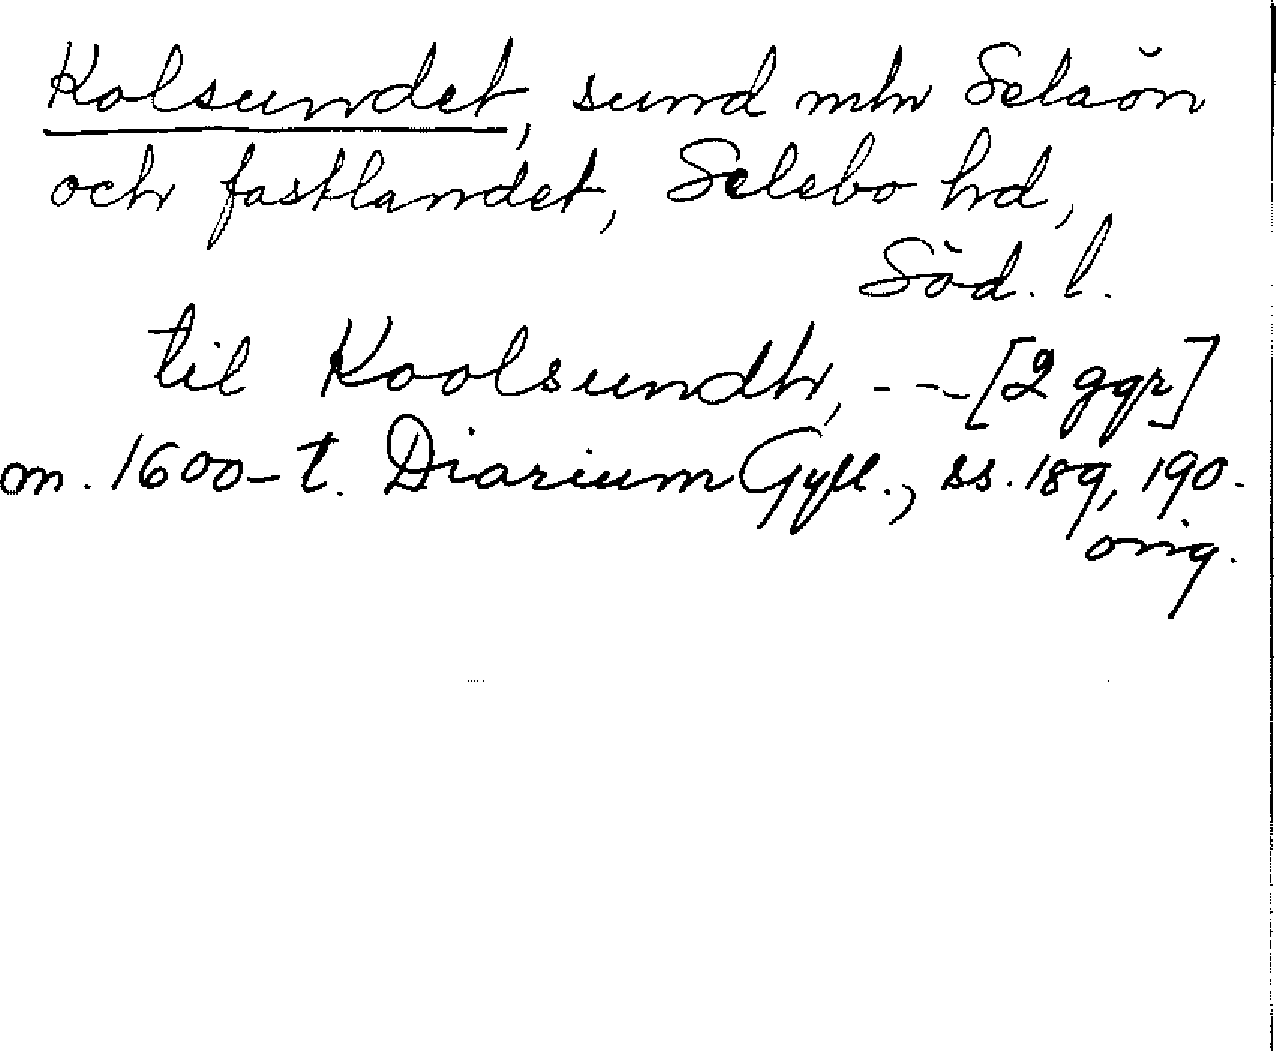 Kolsundet, sund mln Selaön
och fastlandet, Selebo hd,
Söd. l.
til Koolsundh, --- [2 ggr]
m. 1600-t. Diarium Gyll., ss. 189, 190.
orig.